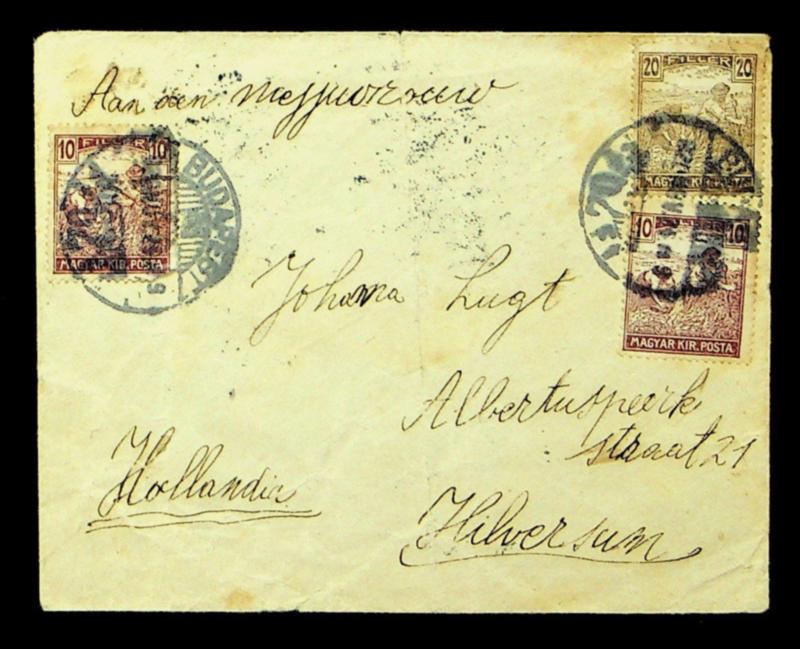 Aan den mejjuvrouw
Johanna Lugt
Albertusperk
straat 21
Hilversum
Hollandia
10 FILLÉR 10
MAGYAR KIR. POSTA
BUDAPEST
20 FILLÉR 20
MAGYAR KIR. POSTA
BU
10 10
MAGYAR KIR. POSTA